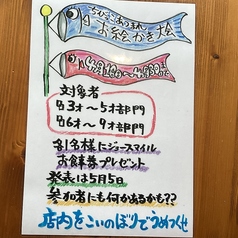 ちびっこあつまれ
お絵かき大会
4月19日〜4月30日まで
対象者
3才〜5才部門
6才〜9才部門
各1名様にジュースマイル
お食事券プレゼント
発表は5月5日
参加者にも何かあるかも??
店内をこいのぼりでうめつくせ